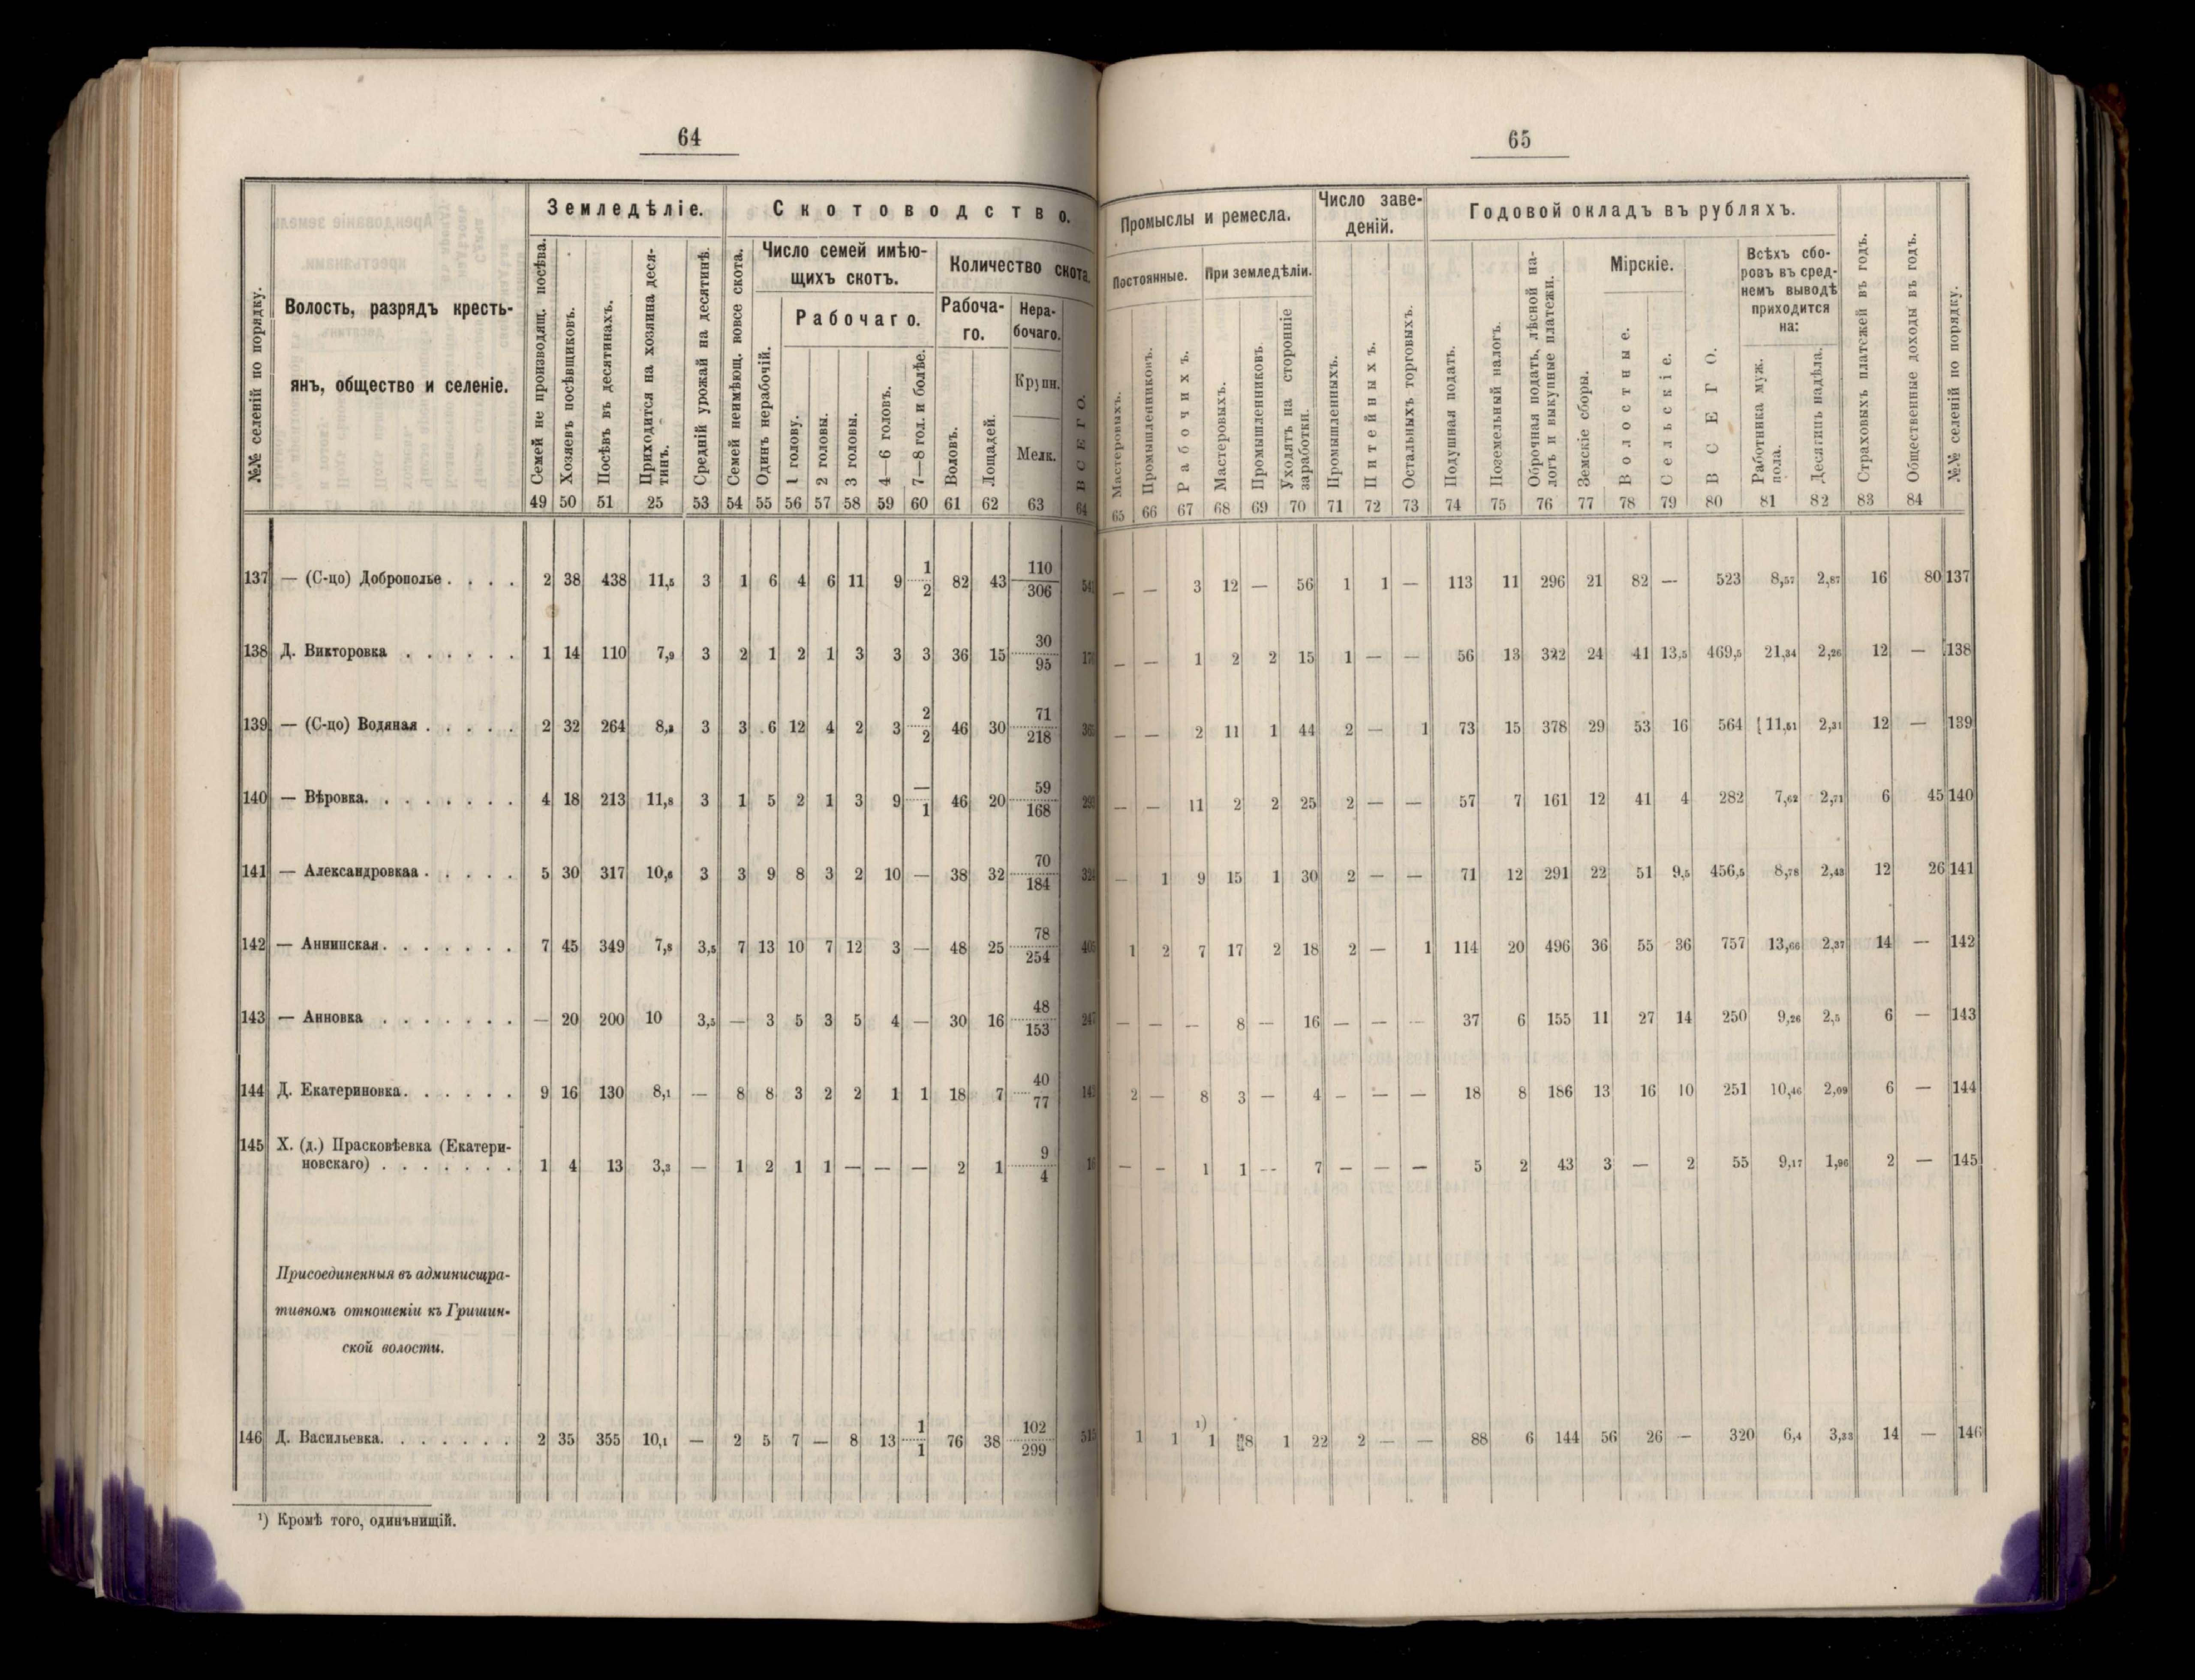 64
Земледѣліе.
Скотоводство.
№№ селеній по порядку.
Волость, разрядъ кресть-
янъ, общество и селеніе.
Семей не производящ. посѣва.
Хозяевъ посѣвщиковъ.
Посѣвъ въ десятинахъ.
Приходится на хозяина деся-
тинъ.
Средній урожай на десятинѣ.
Семей неимѣющ. вовсе скота.
Число семей имѣю-
щихъ скотъ.
Одинъ нерабочій.
Рабочаго.
1 голову.
2 головы.
3 головы.
4—6 головъ.
7—8 гол. и болѣе.
Количество скота.
Рабоча-
го.
Воловъ.
Лошадей.
Нера-
бочаго.
Крупн.
Мелк.
ВСЕГО.
49 50 51 25 53 54 55 56 57 58 59 60 61 62 63 64
137 — (С-цо) Доброполье . . . . 2 38 438 11,5 3 1 6 4 6 11 9 1/2 82 43 110/306 541
138 Д. Викторовка . . . . . . 1 14 110 7,9 3 2 1 2 1 3 3 3 36 15 30/95 176
139 — (С-цо) Водяная . . . . . 2 32 264 8,3 3 3 6 12 4 2 3 2/2 46 30 71/218 365
140 — Вѣровка. . . . . . . . 4 18 213 11,8 3 1 5 2 1 3 9 —/1 46 20 59/168 293
141 — Александровкаа . . . . . 5 30 317 10,6 3 3 9 8 3 2 10 — 38 32 70/184 324
142 — Аннинская. . . . . . . 7 45 349 7,8 3,5 7 13 10 7 12 3 — 48 25 78/254 405
143 — Анновка . . . . . . . — 20 200 10 3,5 — 3 5 3 5 4 — 30 16 48/153 247
144 Д. Екатериновка. . . . . . 9 16 130 8,1 — 8 8 3 2 2 1 1 18 7 40/77 142
145 Х. (д.) Прасковѣевка (Екатери-
новскаго) . . . . . . . 1 4 13 3,3 — 1 2 1 1 — — — 2 1 9/4 16
Присоединенныя въ админисщра-
тивномъ отношеніи къ Гришин-
ской волости.
146 Д. Васильевка. . . . . . . 2 35 355 10,1 — 2 5 7 — 8 13 1/1 76 38 102/299 515
¹) Кромѣ того, одинънищій.
65
Промыслы и ремесла.
Число заве-
деній.
Годовой окладъ въ рубляхъ.
Постоянные.
При земледѣліи.
Мастеровыхъ.
Промышленниковъ.
Рабочихъ.
Мастеровыхъ.
Промышленниковъ.
Уходятъ на сторонніе
заработки.
Промышленныхъ.
Питейныхъ.
Остальныхъ торговыхъ.
Подушная подать.
Поземельный налогъ.
Оброчная подать, лѣсной на-
логъ и выкупные платежи.
Земскіе сборы.
Мірскіе.
Волостные.
Сельскіе.
ВСЕГО.
Всѣхъ сбо-
ровъ въ сред-
немъ выводѣ
приходится
на:
Работника муж.
пола.
Десятинъ надѣла.
Страховыхъ платежей въ годъ.
Общественные доходы въ годъ.
№№ селеній по порядку.
65 66 67 68 69 70 71 72 73 74 75 76 77 78 79 80 81 82 83 84
— — 3 12 — 56 1 1 — 113 11 296 21 82 — 523 8,57 2,87 16 80 137
— — 1 2 2 15 1 — — 56 13 322 24 41 13,5 469,5 21,34 2,26 12 — 138
— — 2 11 1 44 2 — 1 73 15 378 29 53 16 564 11,51 2,31 12 — 139
— — 11 2 2 25 2 — — 57 7 161 12 41 4 282 7,62 2,71 6 45 140
— 1 9 15 1 30 2 — — 71 12 291 22 51 9,5 456,5 8,78 2,43 12 26 141
1 2 7 17 2 18 2 — 1 114 20 496 36 55 36 757 13,66 2,37 14 — 142
— — — 8 — 16 — — — 37 6 155 11 27 14 250 9,26 2,5 6 — 143
2 — 8 3 — 4 — — — 18 8 186 13 16 10 251 10,46 2,09 6 — 144
— — 1 1 — 7 — — — 5 2 43 3 — 2 55 9,17 1,96 2 — 145
1 1 ¹) 1 8 1 22 2 — — 88 6 144 56 26 — 320 6,4 3,33 14 — 146